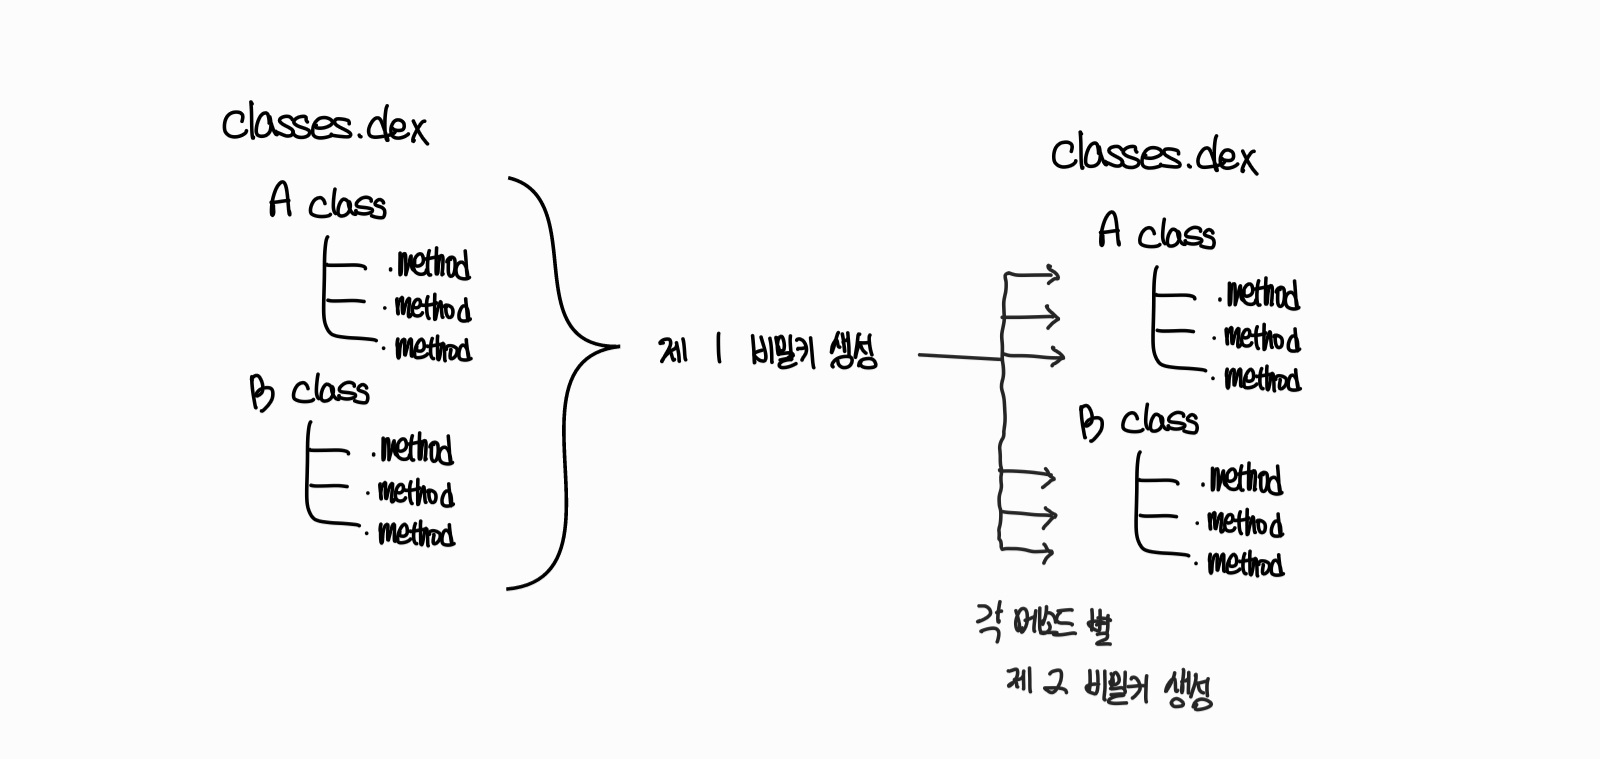 classes.dex
A class
. method
. method
. method
B class
. method
. method
. method
제 1 비밀키 생성
classes.dex
A class
. method
. method
. method
B class
. method
. method
. method
각 메소드 별
제 2 비밀키 생성